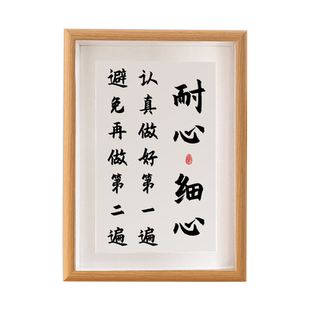 耐心·细心
认真做好第一遍
避免再做第二遍